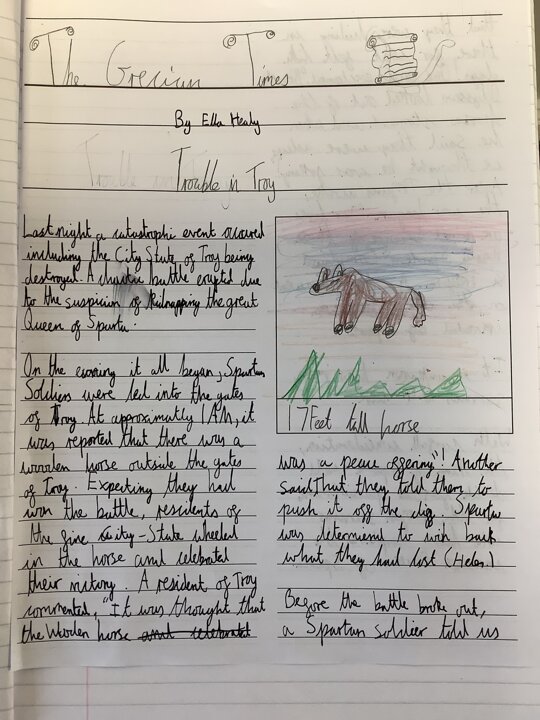 The Grecian Times
By Ella Healy
Trouble in Troy
Last night a catastrophi event occured
including the City State of Troy being
destroyed. A chaotic battle erupted due
to the suspicion of kidnapping the great
Queen of Sparta.
On the evening it all began, Spartan
Soldiers were led into the gates
of Troy. At approximatly 1AM, it
was reported that there was a
wooden horse outside the gates
of Troy. Expecting they had
won the battle, residents of
the fine City-State wheeled
in the horse and celebrated
their victory. A resident of Troy
commented, "It was thought that
the wooden horse and celebrated
17 Feet tall horse
was a peace offering"! Another
said That they told them to
push it off the clif. Sparta
was determiend to win back
what they had lost (Helen.)
Before the battle broke out,
a Spartan soldier told us